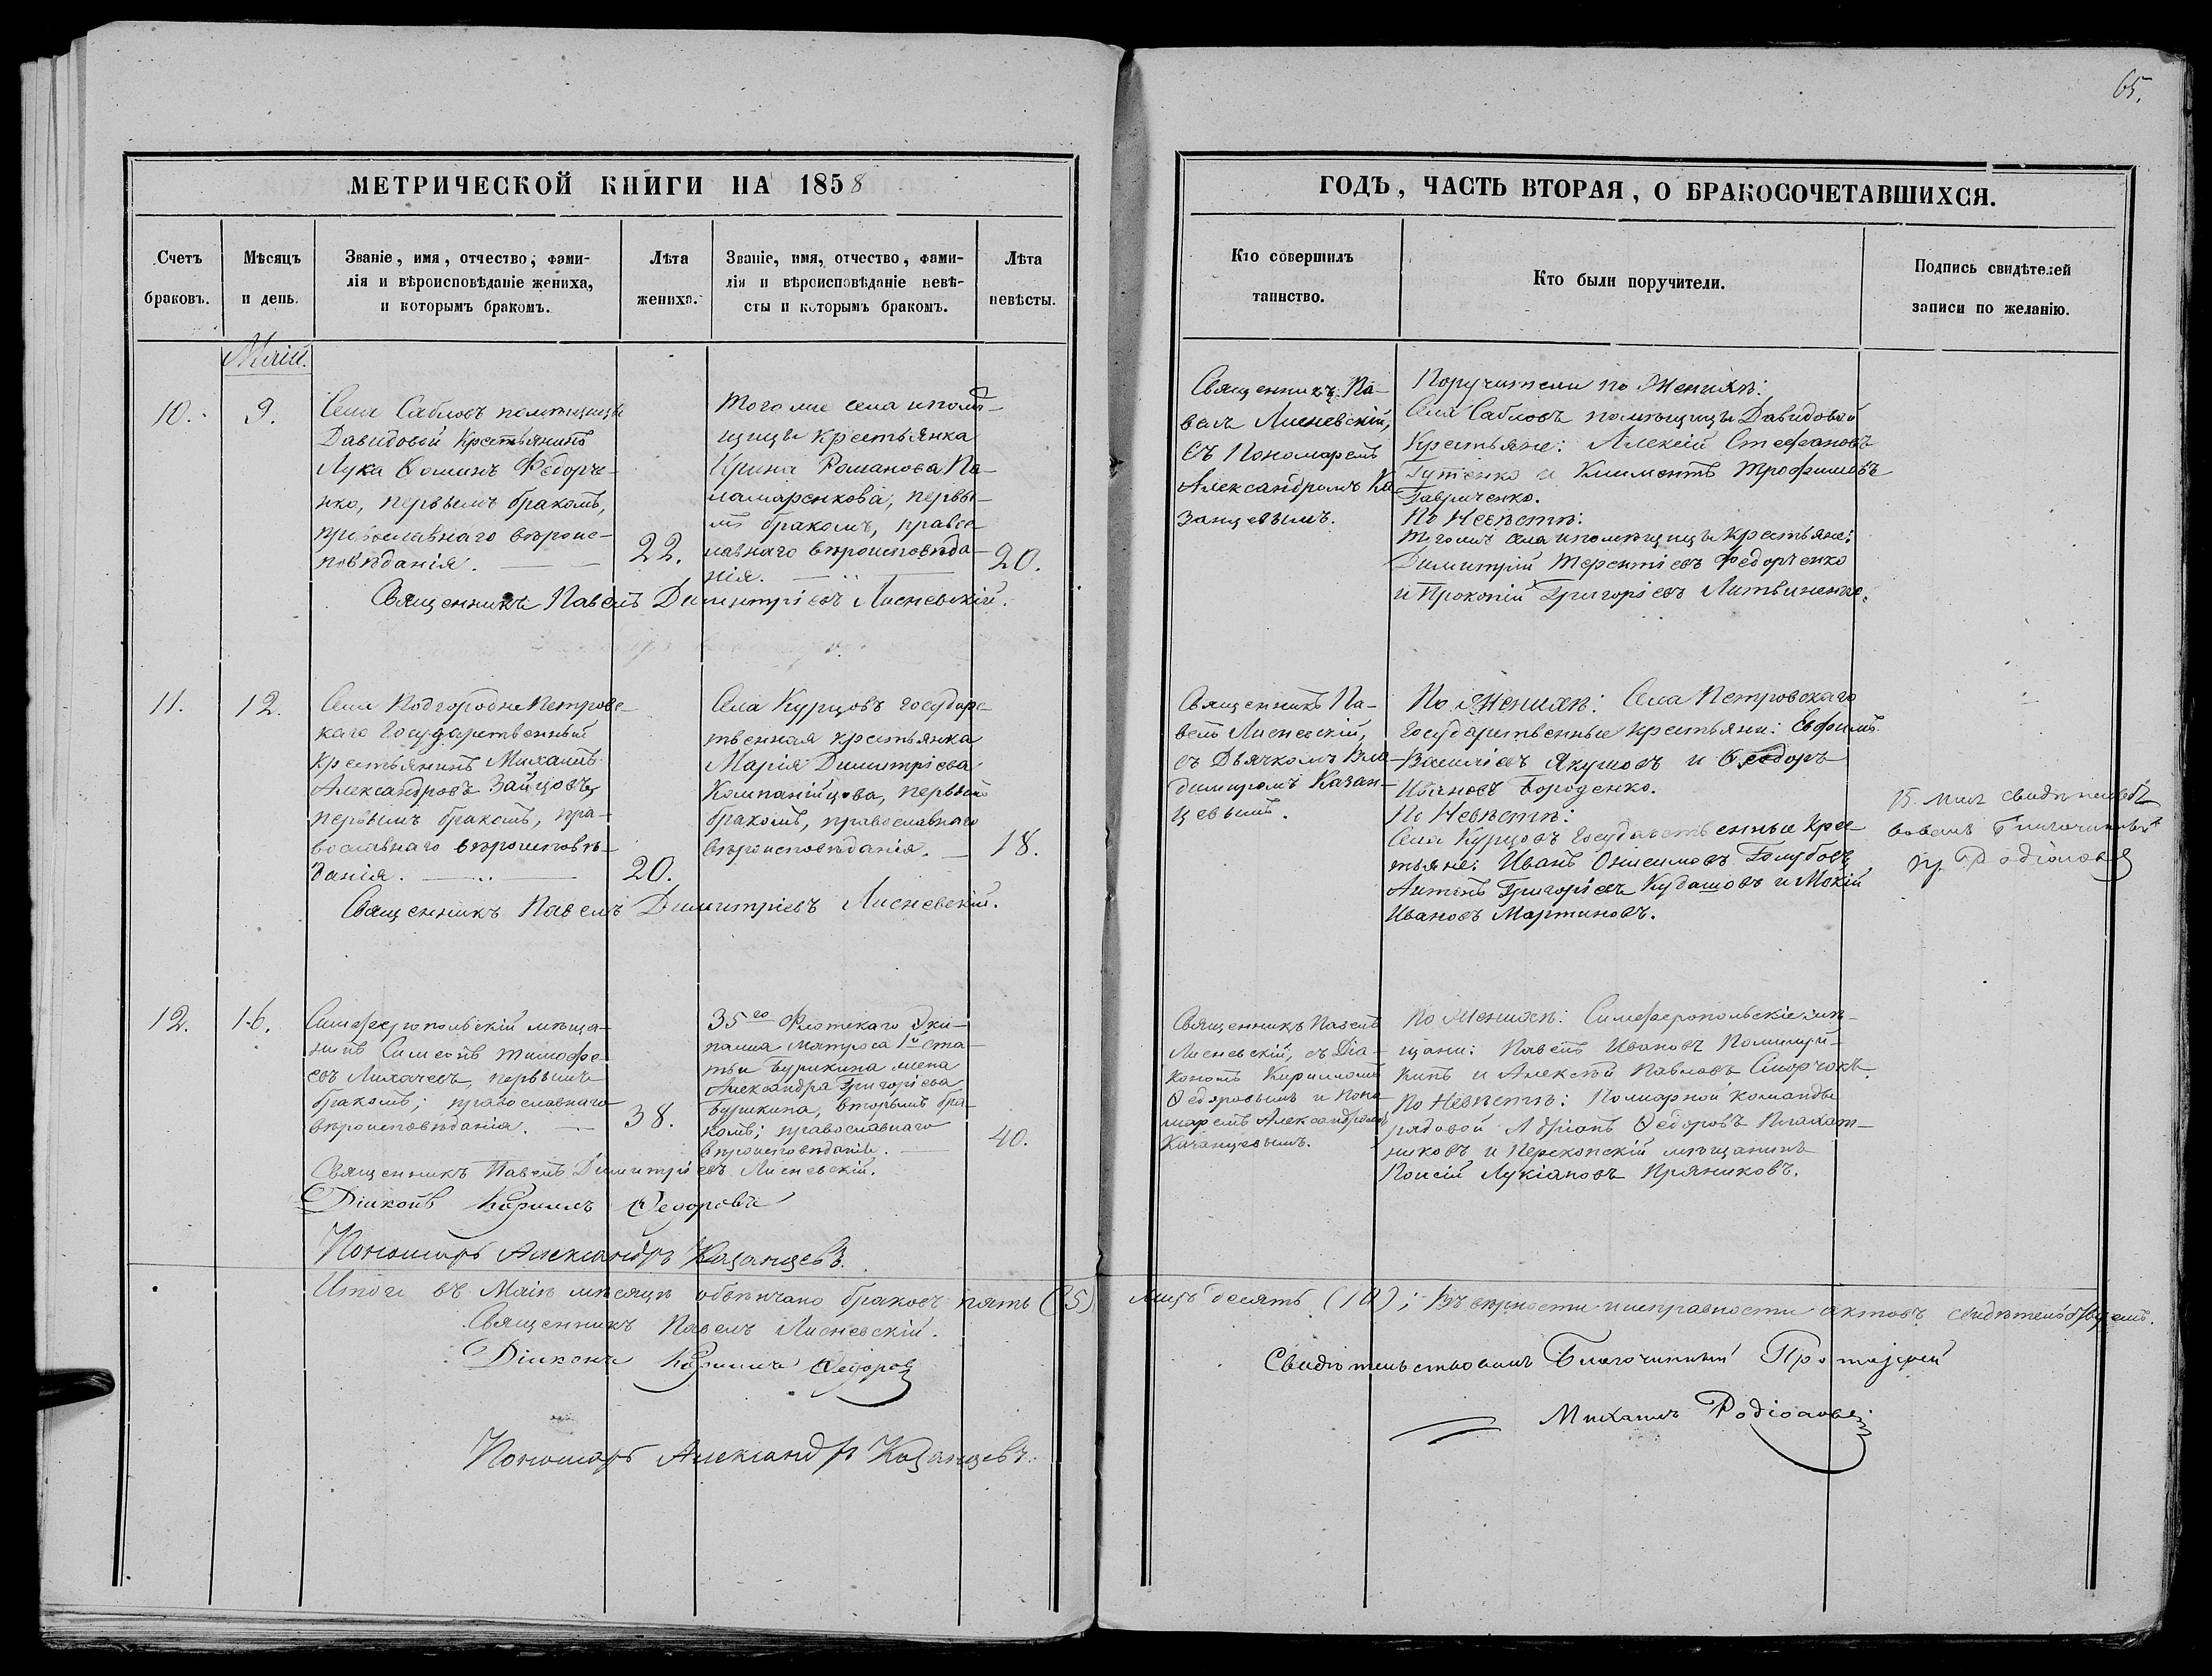 65.
МЕТРИЧЕСКОЙ КНИГИ НА 1858
ГОДЪ, ЧАСТЬ ВТОРАЯ, О БРАКОСОЧЕТАВШИХСЯ.
Счетъ
браковъ.
Мѣсяцъ
и день.
Званіе, имя, отчество, фами-
лія и вѣроисповѣданіе жениха,
и которымъ бракомъ.
Лѣта
жениха.
Званіе, имя, отчество, фами-
лія и вѣроисповѣданіе невѣ-
сты и которымъ бракомъ.
Лѣта
невѣсты.
Кто совершилъ
таинство.
Кто были поручители.
Подпись свидѣтелей
записи по желанію.
Маій.
10.
9.
Села Сабловъ помѣщицы
Давидовой Крестьянинъ
Лука Ѳоминъ Федорче-
нко, первымъ бракомъ,
православнаго вѣроис-
повѣданія.
22.
Того же села и помѣ-
щицы крестьянка
Ирина Романова Па-
ламаренкова, первы-
мъ бракомъ, право-
лавнаго вѣроисповѣда-
нія.
20.
Священникъ Павелъ Димитріевъ Лисневскій.
Священникъ Па-
велъ Лисневскій,
съ Пономаремъ
Александромъ Ка-
занцевымъ.
Поручители по Женихѣ:
Села Сабловъ помѣщицы Давидовой
Крестьяне: Алексій Стефановъ
Гутенко и Климентъ Трофимовъ
Гавриченко.
По Невѣстѣ:
Того же села и помѣщицы крестьяне:
Димитрій Терентіевъ Федорченко
и Прокопій Григоріевъ Литвиненко.
11.
12.
Села Подгородне Петровс-
каго Государственный
крестьянинъ Михаилъ
Александровъ Зайцовъ,
первымъ бракомъ, пра-
вославнаго вѣроисповѣ-
данія.
20.
Села Курцовъ государс-
твенная крестьянка
Марія Димитріева
Компанійцова, первымъ
бракомъ, православнаго
вѣроисповѣданія.
18.
Священникъ Павелъ Димитріевъ Лисневскій.
Священникъ Па-
велъ Лисневскій,
съ Дьячкомъ Вла-
димиромъ Казан-
цевымъ.
По Женихѣ: Села Петровскаго
государственные крестьяни: Евфимъ
Василіевъ Якушовъ и Ѳеодоръ
Ивановъ Бороденко.
По Невѣстѣ:
Села Курцовъ государственные крес-
тьяне: Иванъ Онисимовъ Голубовъ,
Антонъ Григоріевъ Кудашовъ и Мокій
Ивановъ Мартиновъ.
15. мая свидѣтельст-
вовалъ Благочинный
пр. Родіоновъ
12.
16.
Симферопольскій мѣща-
нинъ Симеонъ Тимофе-
евъ Лихачевъ, первымъ
бракомъ; православнаго
вѣроисповѣданія.
38.
35го Флотскаго Эки-
пажа матроса 1й ста-
тьи Бурикина жена
Александра Григоріева
Бурикина, вторымъ бра-
комъ; православнаго
вѣроисповѣданія.
40.
Священникъ Павелъ Димитріевъ Лисневскій.
Діаконъ Кириллъ Ѳедоровъ
Пономарь Александръ Казанцевъ.
Священникъ Павелъ
Лисневскій, съ Діа-
кономъ Кирилломъ
Ѳедоровымъ и Поно-
маремъ Александромъ
Казанцевымъ.
По Женихѣ: Симферопольскіе мѣ-
щани: Павелъ Ивановъ
и Алексѣй Павловъ Сморчокъ.
По Невѣстѣ: Пожарной команды
рядовой Адріанъ Ѳедоровъ
и Перекопскій мѣщанинъ
Лукіановъ Пряниковъ.
Итого въ Маіѣ мѣсяцѣ обвѣнчано браковъ пять (5) лицъ десять (10); Въ вѣрности и исправности актовъ свидѣтельствуемъ.
Священникъ Павелъ Лисневскій.
Діаконъ Кириллъ Ѳедоровъ
Пономарь Александръ Казанцевъ.
Свидѣтельствовалъ Благочинный Протоіерей
Михаилъ Родіоновъ